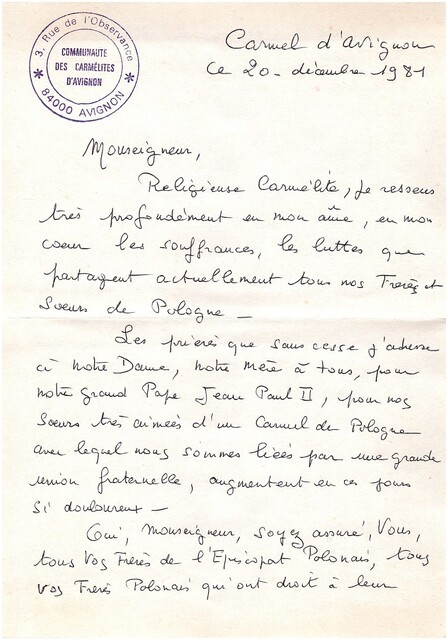 3, Rue de l'Observance
COMMUNAUTE
DES CARMÉLITES
D'AVIGNON
* 84000 AVIGNON *
Carmel d'Avignon
ce 20 - décembre 1981
Monseigneur,
Religieuse Carmélite, je ressens
très profondément en mon âme, en mon
coeur les souffrances, les luttes que
partagent actuellement tous nos Frères et
Soeurs de Pologne —
Les prières que sans cesse j'adresse
à Notre Dame, notre mère à tous, pour
notre grand Pape Jean Paul II, pour nos
Soeurs très aimées d'un Carmel de Pologne
avec lequel nous sommes liées par une grande
union fraternelle, augmentent en ces jours
si douloureux —
Oui, Monseigneur, soyez assuré, Vous,
tous vos Frères de l'Episcopat Polonais, tous
vos Frères Polonais qui ont droit à leur